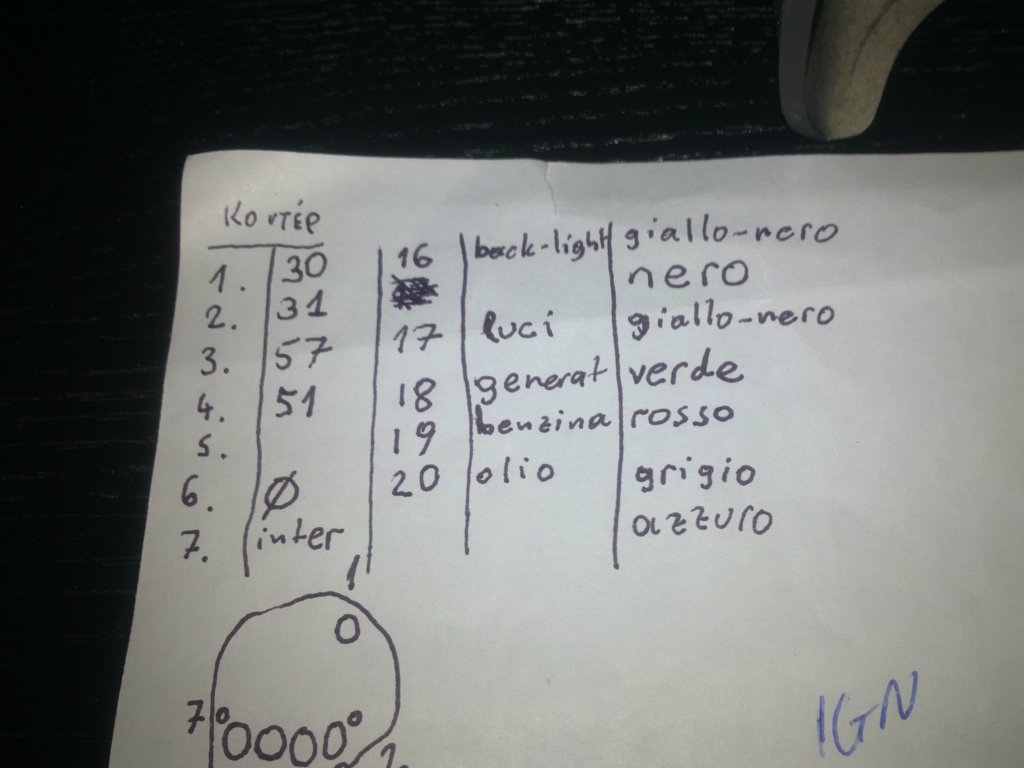 Κοντέρ
1. 30 16 back-light giallo-nero
2. 31 nero
3. 57 17 luci giallo-nero
4. 51 18 generat verde
5. 19 benzina rosso
6. Ø 20 olio grigio
7. inter azzuro
1
7 2.
IGN